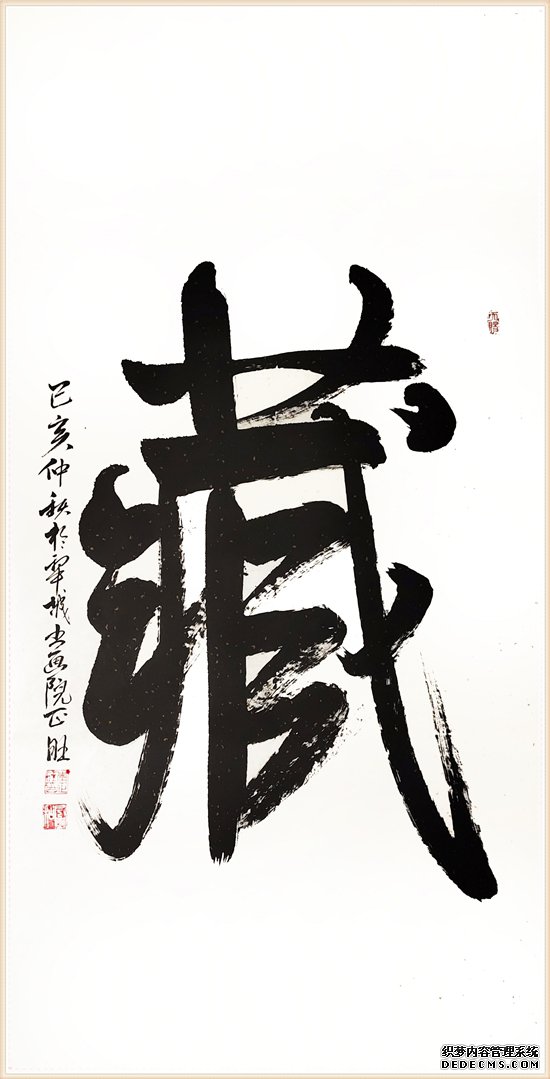 藏
己亥仲秋於翠城书画院正旺
织梦内容管理系统
DEDECMS.COM